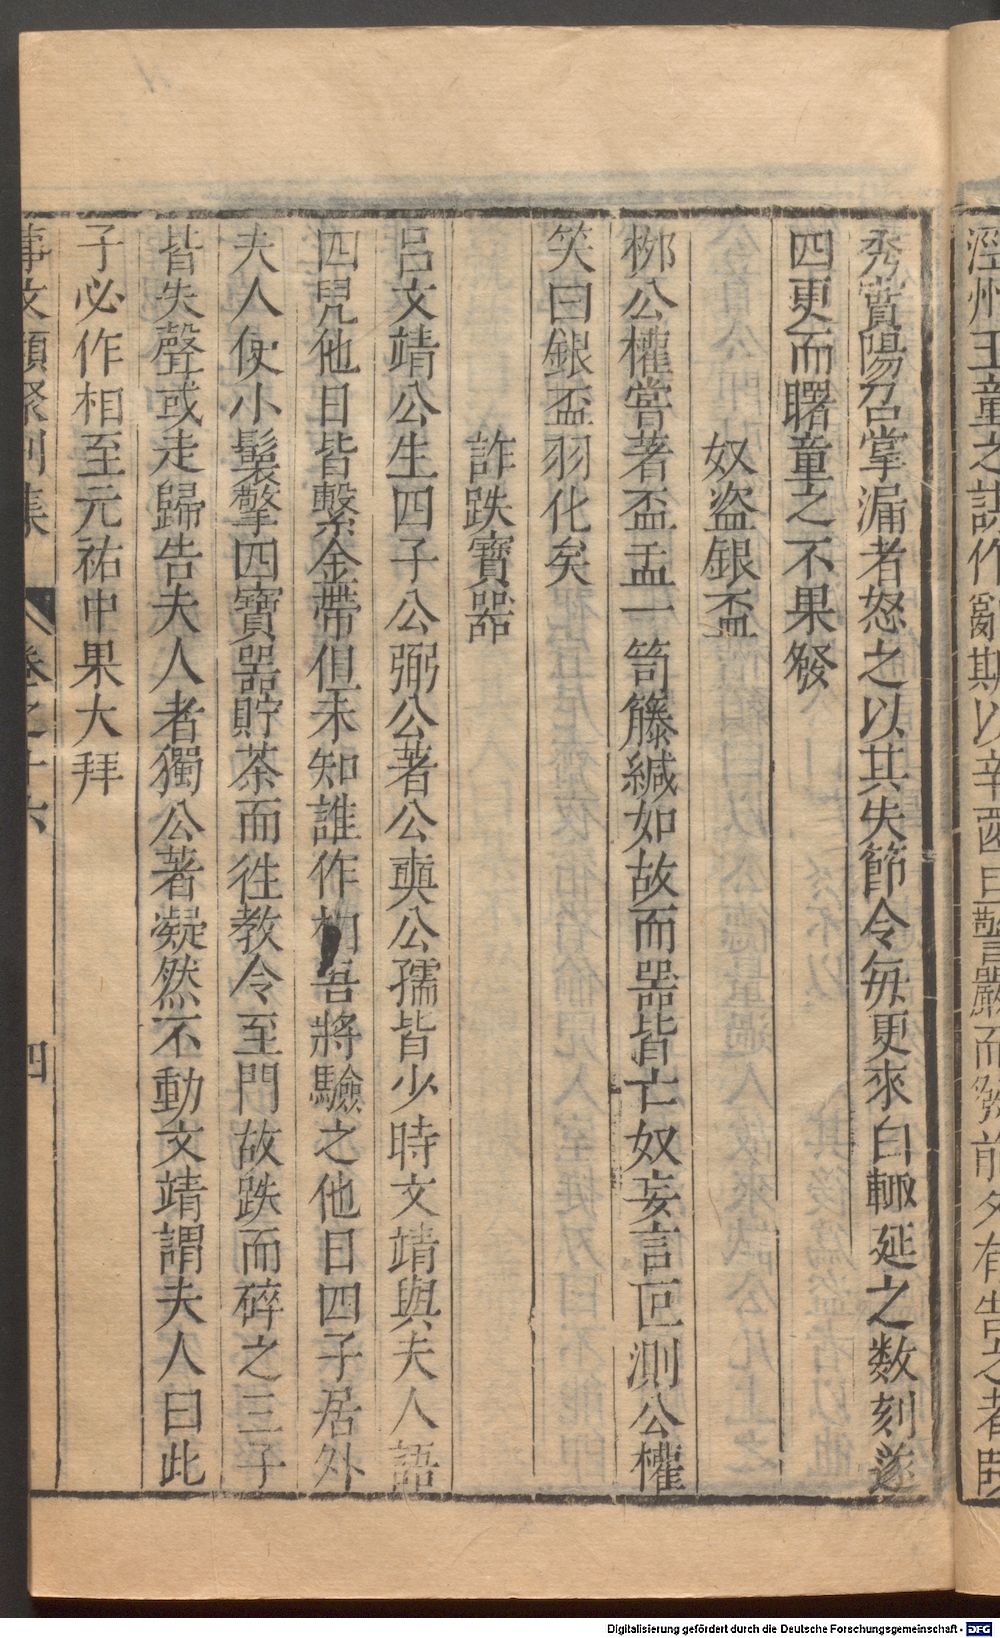 涇州王童之謀作亂期以辛酉旦警嚴而發前夕有告之者
秀實陽召掌漏者怒之以其失節令每更來白輙延之数刻遂
四更而曙童之不果發
奴盜銀盃
柳公權嘗著盃盂一笥籐緘如故而器皆亡奴妄言叵測公權
笑曰銀盃羽化矣
詐跌寶器
呂文靖公生四子公弼公著公奭公孺皆少時文靖與夫人語
四兒他日皆繫金帶但未知誰作相吾將驗之他日四子居外
夫人使小鬟擎四寶器貯茶而徃教令至門故跌而碎之三子
皆失聲或走歸告夫人者獨公著凝然不動文靖謂夫人曰此
子必作相至元祐中果大拜
事文類聚別集 卷之十六 四
Digitalisierung gefördert durch die Deutsche Forschungsgemeinschaft - DFG